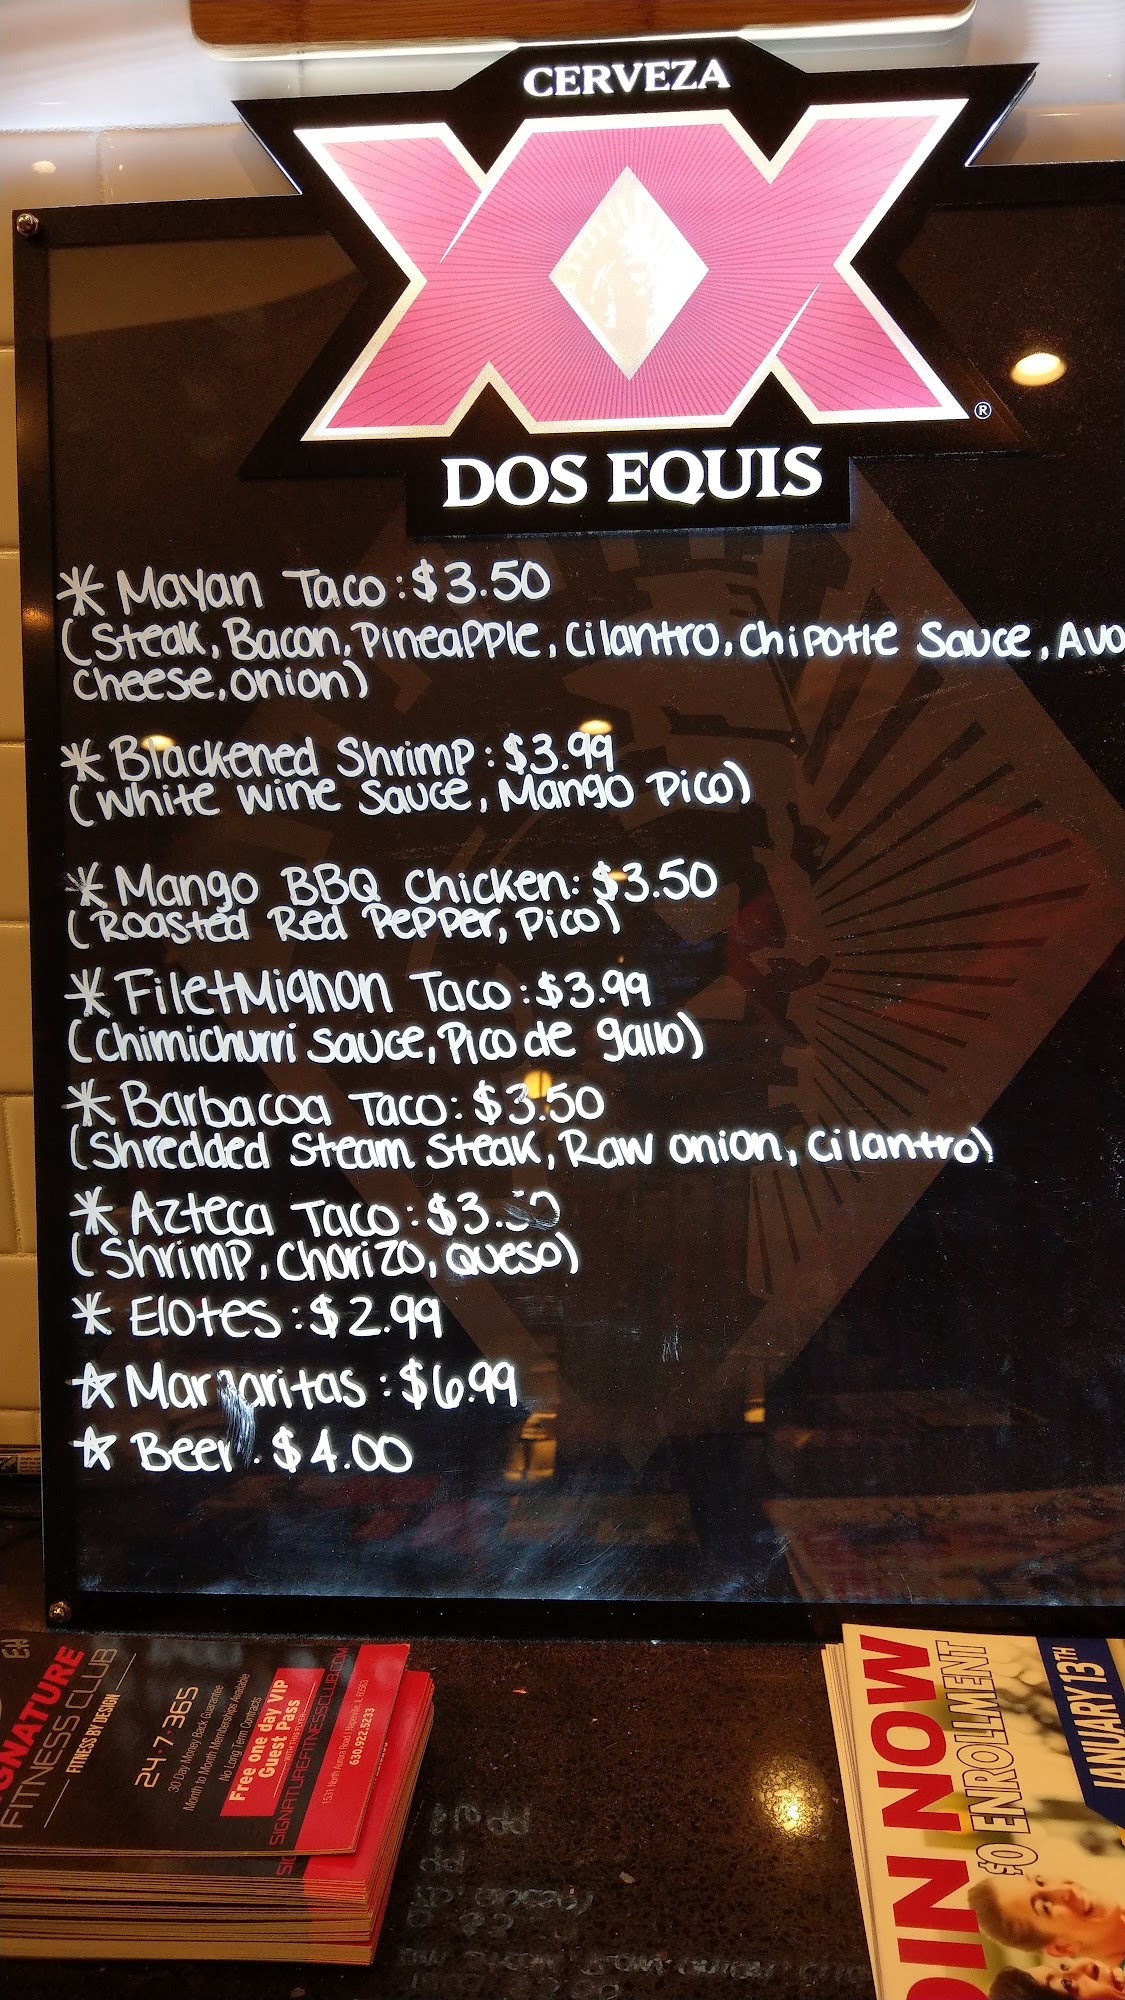 CERVEZA
XX
®
DOS EQUIS
* Mayan Taco: $3.50
(Steak, Bacon, Pineapple, Cilantro, Chipotle Sauce, Avo
Cheese, Onion)
* Blackened Shrimp: $3.99
(White Wine Sauce, Mango Pico)
* Mango BBQ Chicken: $3.50
(Roasted Red Pepper, Pico)
* Filet Mignon Taco: $3.99
(Chimichurri Sauce, Pico de gallo)
* Barbacoa Taco: $3.50
(Shredded Steam Steak, Raw onion, Cilantro)
* Azteca Taco: $3.50
(Shrimp, Chorizo, Queso)
* Elotes: $2.99
☆ Margaritas: $6.99
☆ Beer: $4.00
GNATURE
FITNESS CLUB
FITNESS BY DESIGN
24·7·365
30 Day Money Back Guarantee
Month to Month Memberships Available
No Long Term Contracts
Free one day VIP
Guest Pass
WITH THIS FLYER
SIGNATUREFITNESSCLUB.COM
1531 North Aurora Road | Naperville, IL 60563
630.922.5233
OIN NOW
$0 ENROLLMENT
JANUARY 13TH